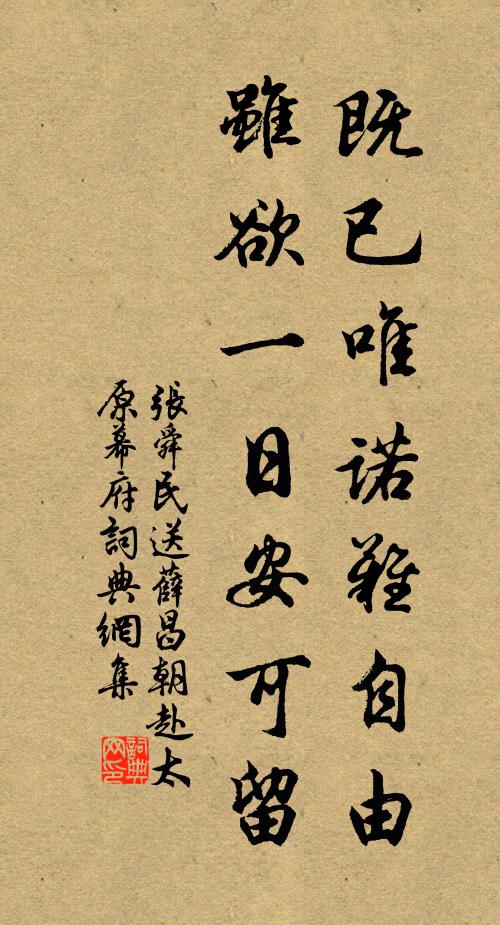 既已唯諾難自由
雖欲一日安可留
張舜民送薛昌朝赴太
原幕府詞典網集
詞典
网印